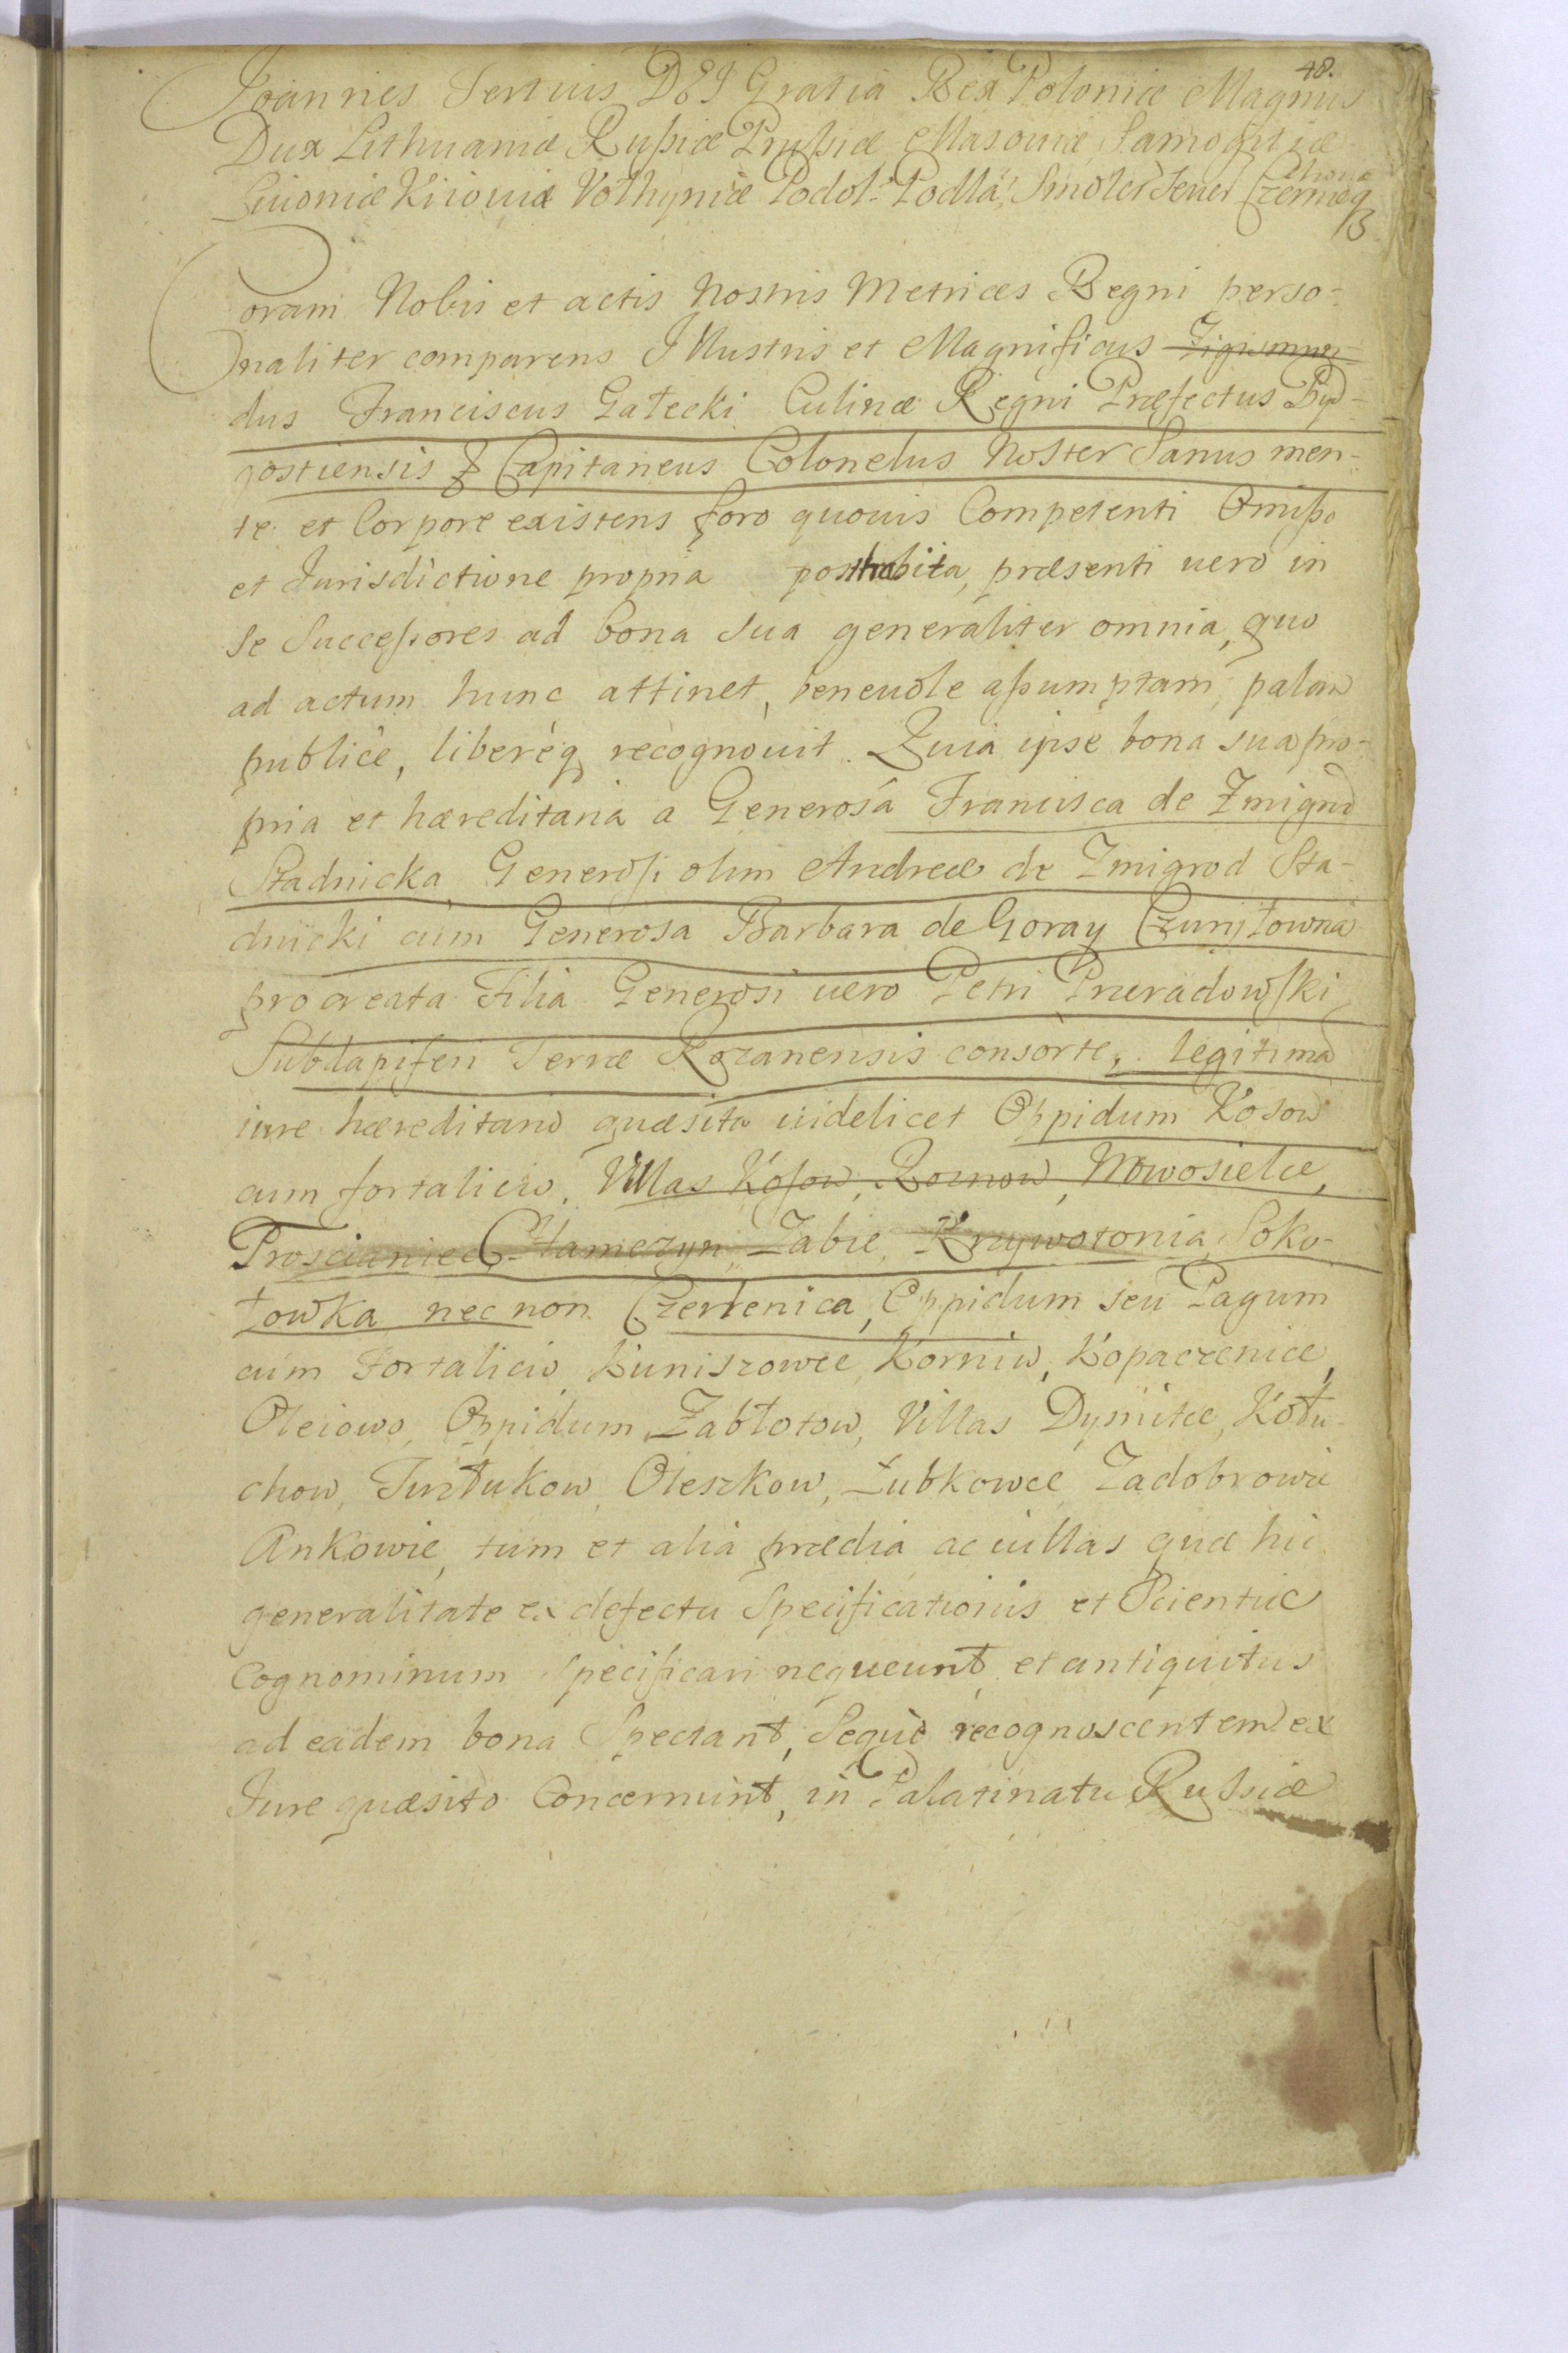 48.
Joannes Tertius DEI Gratia Rex Poloniæ Magnus
Dux Lithuaniæ Rußiæ Prußiæ Masouiæ Samogitiæ
Liuoniæ Kiiouiæ Volhyniæ Podol: Podla: Smolen Seuer Czerniæq
13
Coram Nobis et actis Nostris Metrices Regni perso-
naliter comparens Illustris et Magnificus Zigismun-
dus Franciscus Gałecki Culinæ Regni Præfectus Byd-
gostiensis & Capitaneus Colonelus Noster Sanus men-
te et Corpore existens foro quouis Competenti Omißo
et Jurisdictione propria posthabita, præsenti uero in
se Succeßores ad bona sua generaliter omnia, quo
ad actum hunc attinet, beneuole aßumptam, palam
publicè, liberèq recognouit. Quia ipse bona sua pro-
pria et hæreditaria a Generosa Francisca de Zmigrod
Stadnicka Generosi olim Andreæ de Zmigrod Sta-
dnicki cum Generosa Barbara de Goray Czuryłowna
procreata Filia Generosi uero Petri Przeradowski
Subdapiferi Terræ Rozanensis consorte, legitima
iure hæreditario quæsita uidelicet Oppidum Kosow
cum fortalicio, Villas Kosow, Roznow, Nowosielce,
Proscianiec Chamczyn, Zabie, Krzyworonia, Soko-
łowka nec non Czerlenica, Oppidum seu Pagum
cum Fortalicio Kuniszowce, Korniw, Kopaczenice,
Oleiowo, Oppidum Zabłotow, Villas Dymitce, Kołu-
chow, Tułukow, Oleszkow, Łubkowce Zadobrowie
Ankowie, tum et alia prædia ac uillas quæ hic
generalitate ex defectu Specificationis et Scientiæ
Cognominum specificari nequeunt, et antiquitus
ad eadem bona Spectant, Seque recognoscentem ex
Jure quæsito Concernunt, in Palatinatu Russiæ